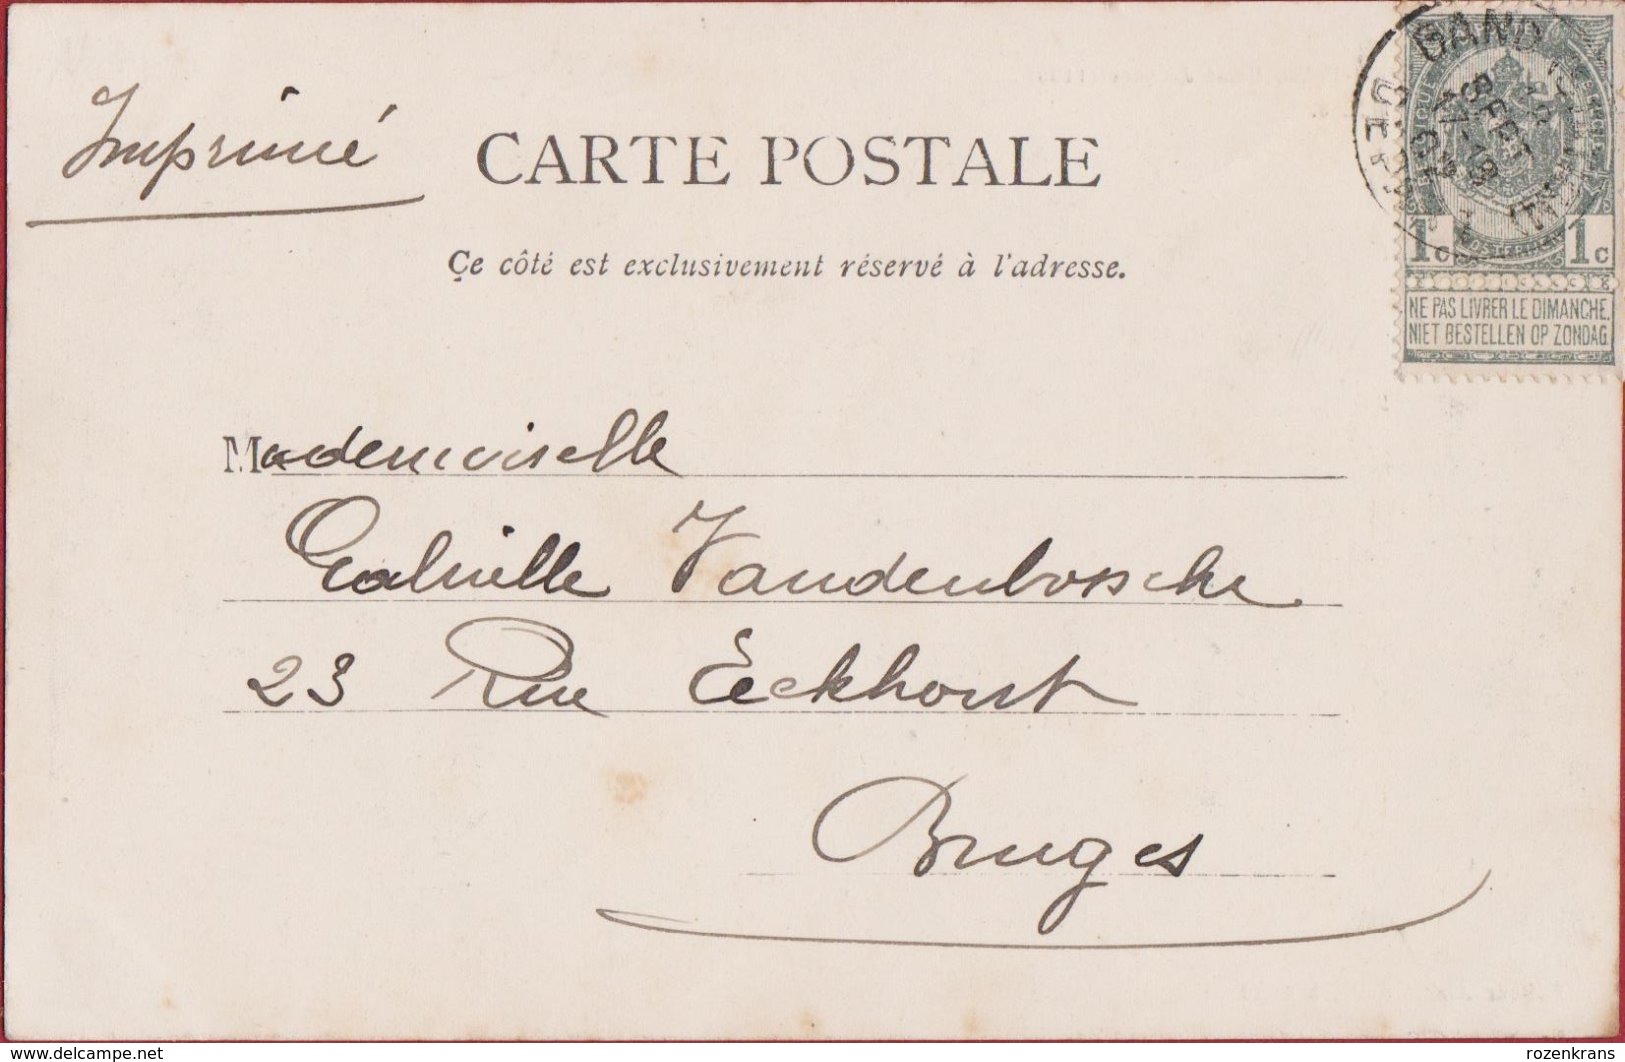 Imprimé
CARTE POSTALE
Ce côté est exclusivement réservé à l'adresse.
GAND
SEPT
17-18
1c 1c
NE PAS LIVRER LE DIMANCHE.
NIET BESTELLEN OP ZONDAG
Mademoiselle
Gabrielle Vandenbossche
23 Rue Eeckhout
Bruges
www.delcampe.net
rozenkrans